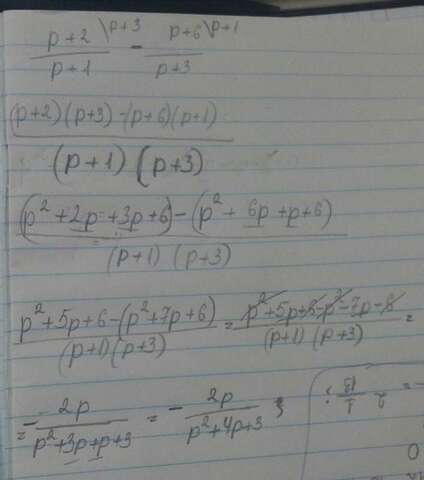 p+2\p+3 / p+1 - p+6\p+1 / p+3
(p+2)(p+3)-(p+6)(p+1) / (p+1)(p+3)
(p²+2p+3p+6)-(p²+6p+p+6) / (p+1)(p+3)
p²+5p+6-(p²+7p+6) / (p+1)(p+3) = p²+5p+6-p²-7p-6 / (p+1)(p+3) =
= -2p / p²+3p+p+3 = - 2p / p²+4p+3 ;